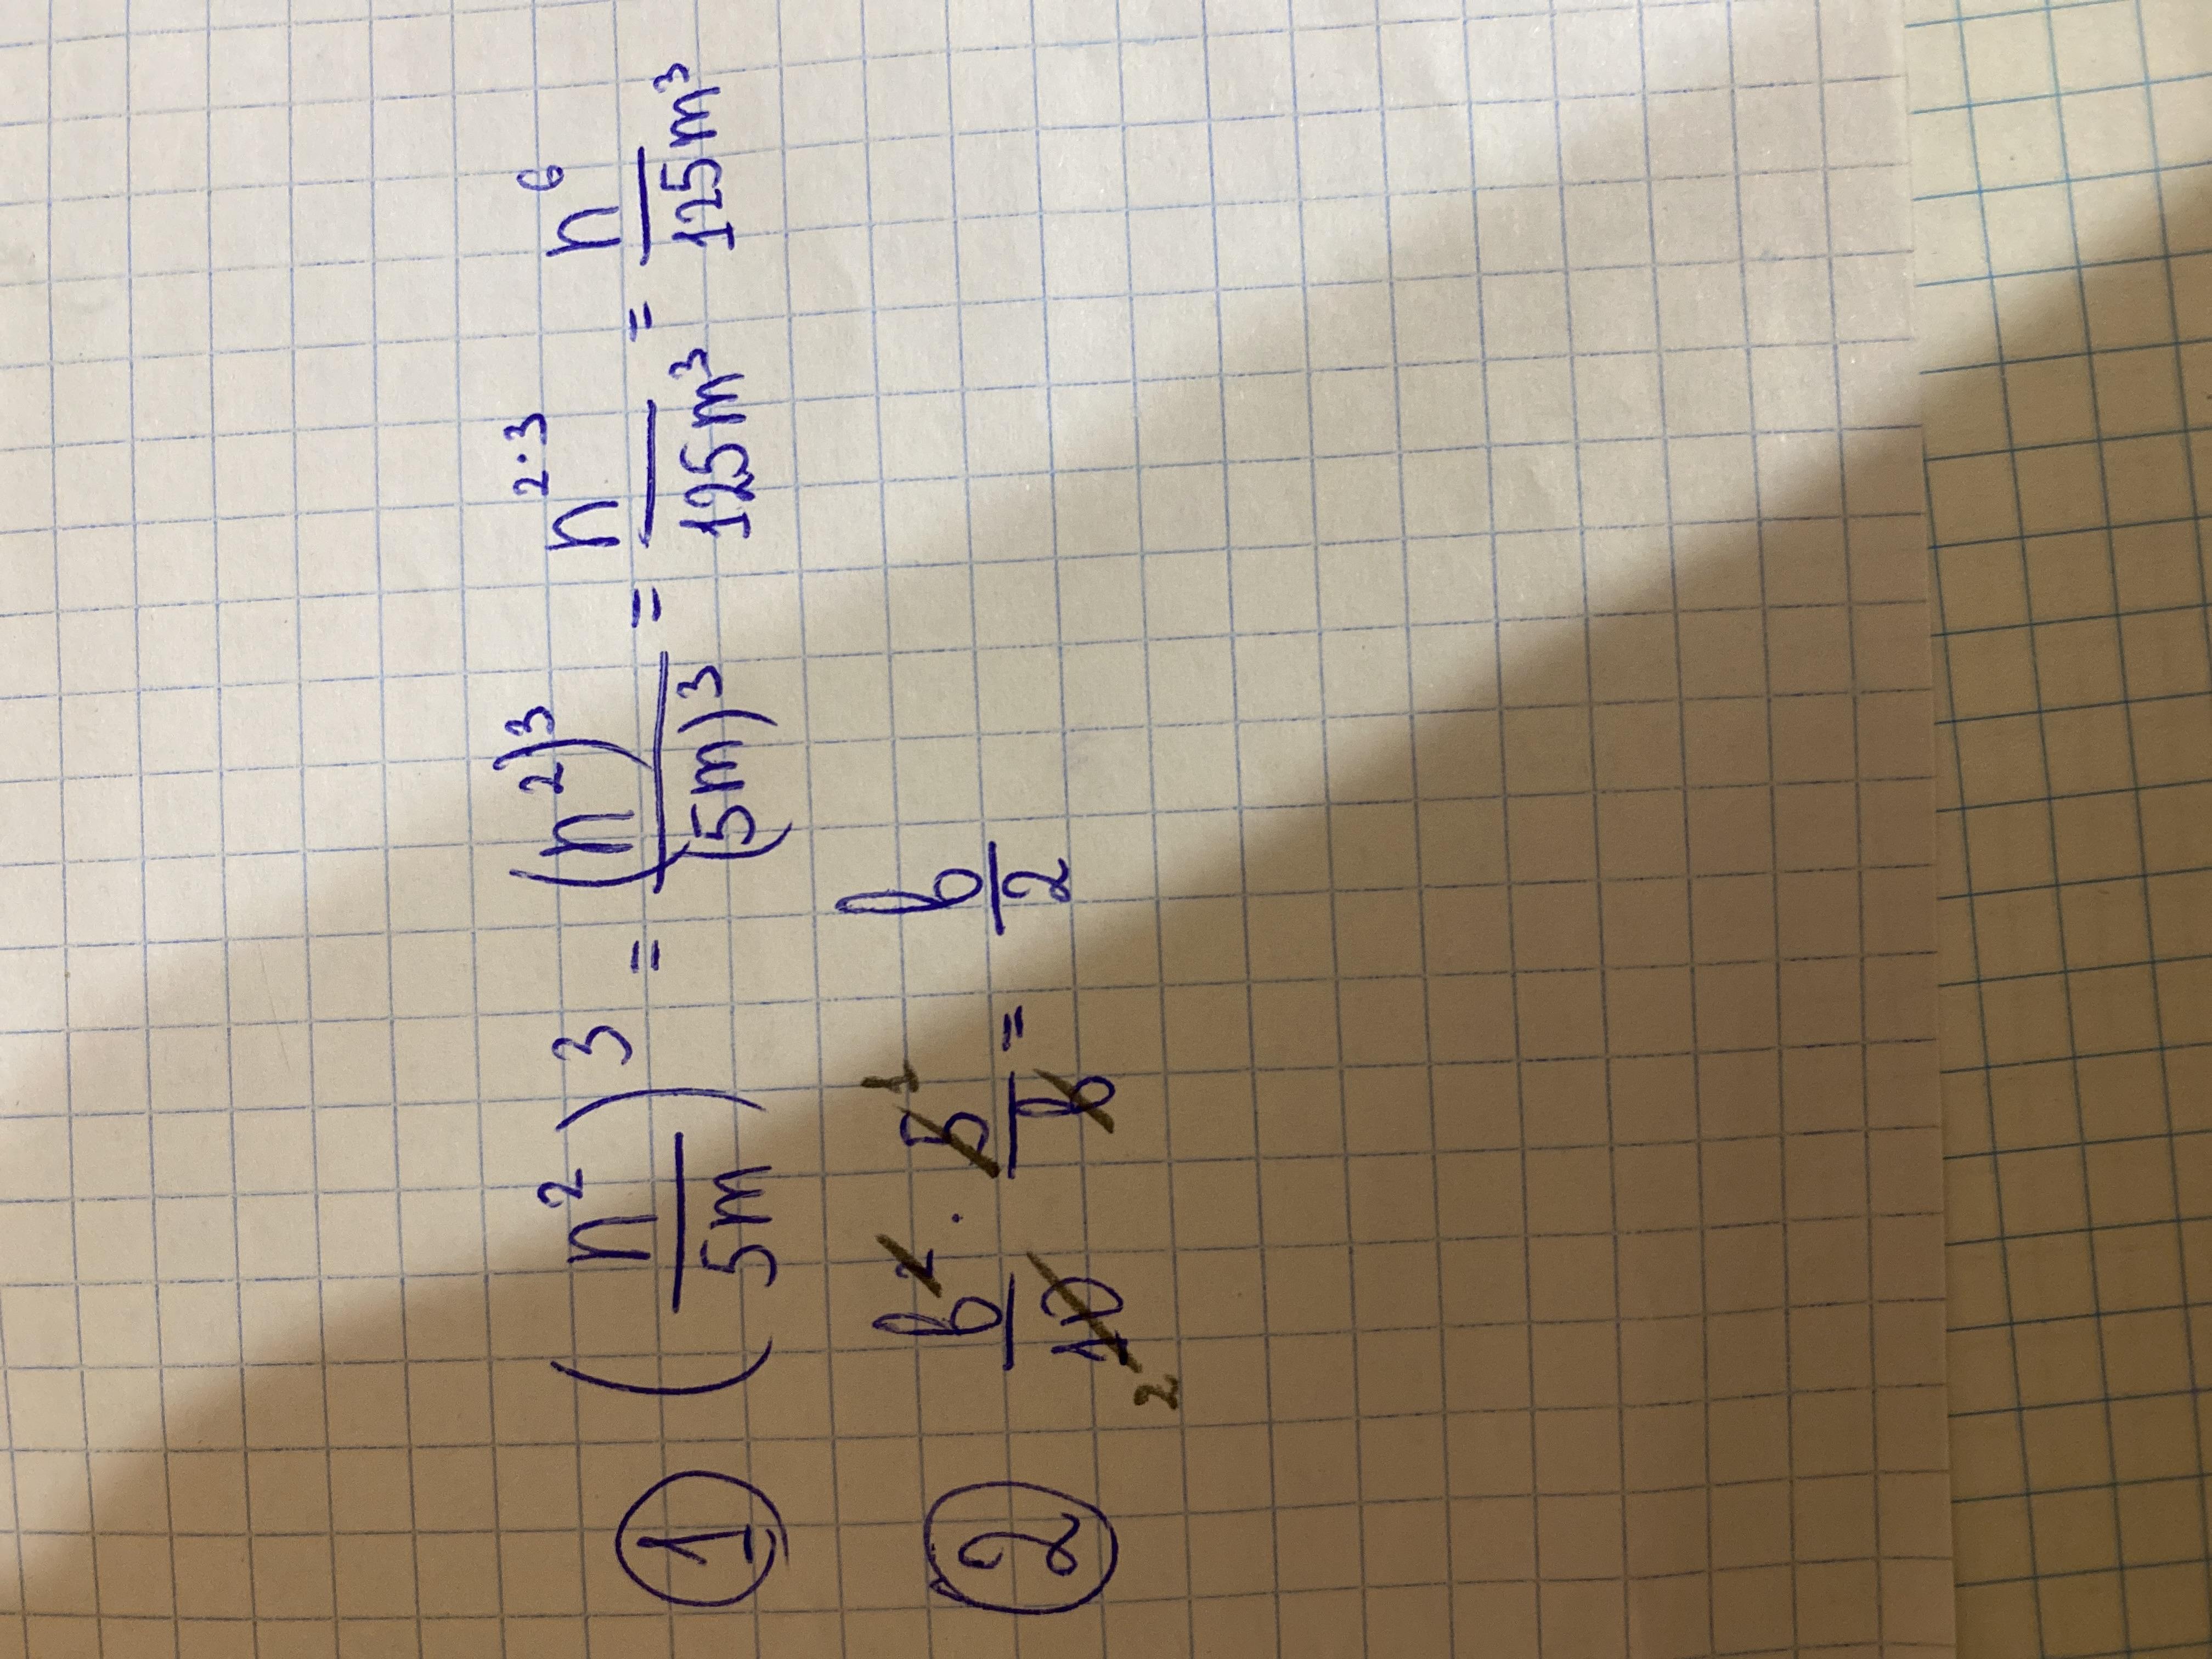 ① (n²/5m)³ = (n²)³/(5m)³ = n²·³/125m³ = n⁶/125m³
② b²/10 2 · 5 1/b = b/2